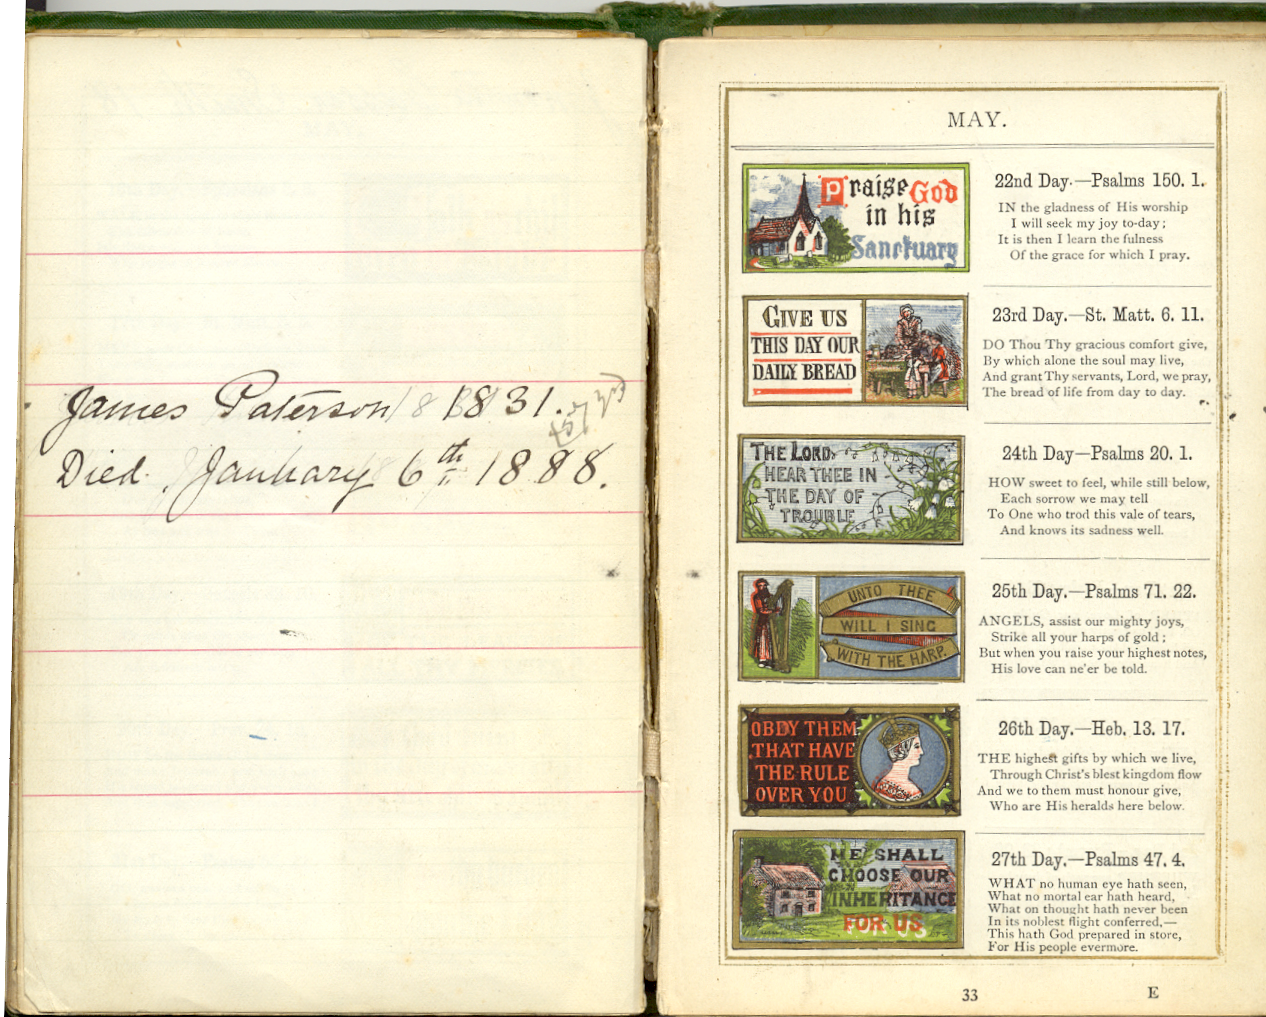 James Paterson 1831.
Died January 6th 1888.
MAY.
Praise God
in his
Sanctuary
22nd Day.—Psalms 150. 1.
IN the gladness of His worship
I will seek my joy to-day;
It is then I learn the fulness
Of the grace for which I pray.
GIVE US
THIS DAY OUR
DAILY BREAD
23rd Day.—St. Matt. 6. 11.
DO Thou Thy gracious comfort give,
By which alone the soul may live,
And grant Thy servants, Lord, we pray,
The bread of life from day to day.
THE LORD
HEAR THEE IN
THE DAY OF
TROUBLE
24th Day—Psalms 20. 1.
HOW sweet to feel, while still below,
Each sorrow we may tell
To One who trod this vale of tears,
And knows its sadness well.
UNTO THEE
WILL I SING
WITH THE HARP.
25th Day.—Psalms 71. 22.
ANGELS, assist our mighty joys,
Strike all your harps of gold;
But when you raise your highest notes,
His love can ne'er be told.
OBEY THEM
THAT HAVE
THE RULE
OVER YOU
26th Day.—Heb. 13. 17.
THE highest gifts by which we live,
Through Christ's blest kingdom flow
And we to them must honour give,
Who are His heralds here below.
HE SHALL
CHOOSE OUR
INHERITANCE
FOR US
27th Day.—Psalms 47. 4.
WHAT no human eye hath seen,
What no mortal ear hath heard,
What on thought hath never been
In its noblest flight conferred,—
This hath God prepared in store,
For His people evermore.
33 E